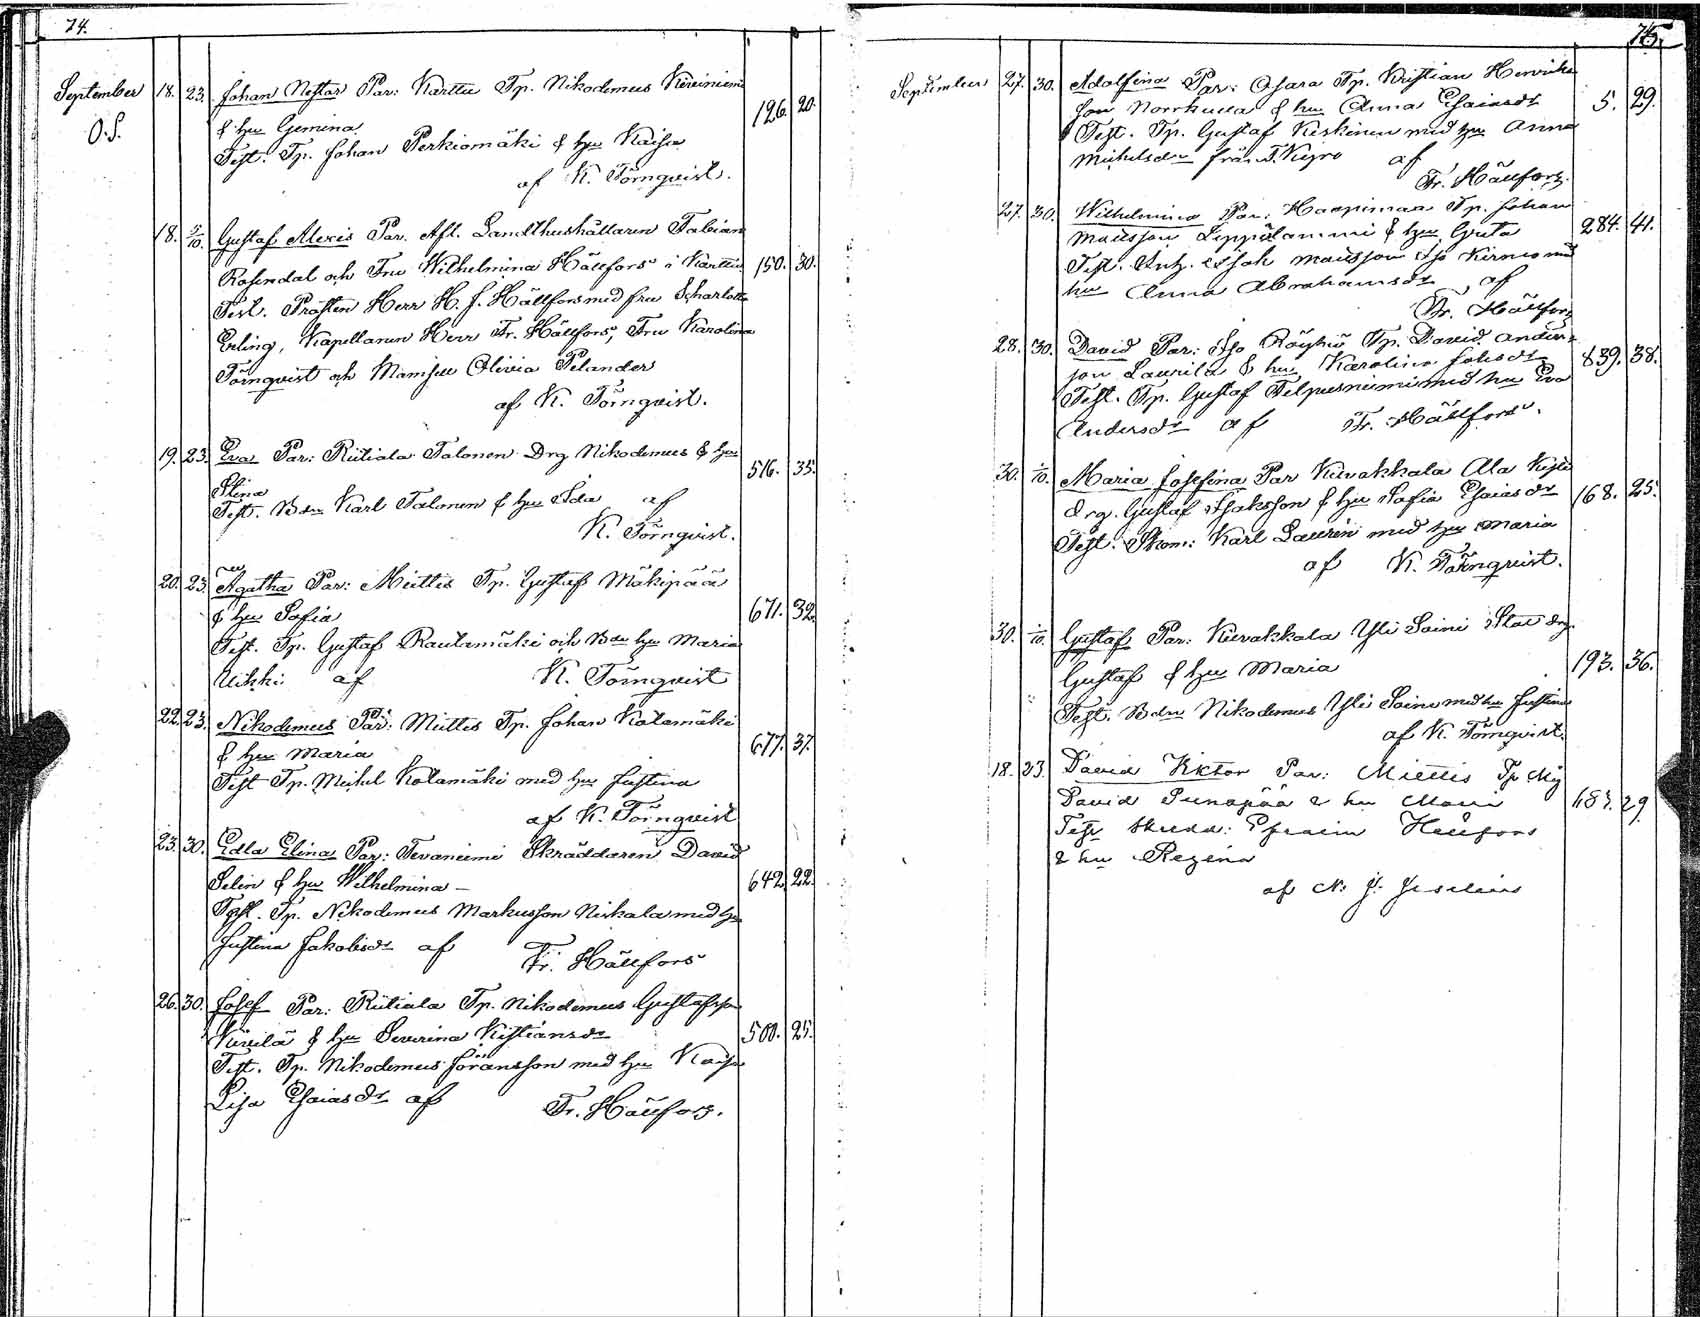 74.
September 18. 23. Johan Nestor Par: Karttu Tp. Nikodemus
O.S.
& hu Gemina 126. 20.
Test. Tp. Johan Perkiomäki & hu Kaisa
af K. Törnqvist.
18. 5/10. Gustaf Alexis Par. Afl. Landthushållaren Fabian
Rosendal och Fru Wilhelmina Hällfors i Karttu 150. 30.
Test. Prosten Herr H. J. Hällfors med fru Scharlotta
Erling, Kapellanen Herr Fr. Hällfors, Fru Karolina
Törnqvist och Mamsell Olivia Pelander
af K. Törnqvist.
19. 23. Eva Par: Riitiala Talonen Drg Nikodemus & hu
Stina 516. 35.
Test. Bdn Karl Talonen & hu Ida af
K. Törnqvist.
20. 23. Agatha Par: Miettis Tp. Gustaf Mäkipää
& hu Sofia 671. 32.
Test. Tp. Gustaf Rautamäki och Bdn hu Maria
Uikki af K. Törnqvist
22. 23. Nikodemus Par: Miettis Tp. Johan Kotamäki
& hu Maria 677. 37.
Test Tp. Mickel Kotamäki med hu Justina
af K. Törnqvist
23. 30. Edla Elina Par: Tevaniemi Skräddaren David
Selin & hu Wilhelmina – 642. 22.
Test. Tp. Nikodemus Markusson Niskala med hu
Justina Jakobsdr af Fr. Hällfors
26. 30. Josef Par: Riitiala Tp. Nikodemus Gustafsson
& hu Severina Kistiansdr 500. 25.
Test. Tp. Nikodemus Göransson med hu Kaisa
Lisa Esaiasdr af Fr. Hällfors.
75.
September 27. 30. Adolfina Par: Osara Tp. Kristian Henriks
son Norrkulla & hu Anna Esaiasdr 5. 29.
Test. Tp. Gustaf Keskinen med hu Anna
Michelsdr från T. Kyro af
Fr. Hällfors.
27. 30. Wilhelmina Par: Haapimaa Tp. Johan
Matsson Leppälammi & hu Greta 284. 41.
Test. Matsson Iso Kirmo med
hu Anna Abrahamsdr, af
Fr. Hällfors
28. 30. David Par: Iso Röyhiö Tp. David Anders-
son Laurila & hu Karolina Johsdr 839. 38.
Test. Tp. Gustaf Telpusniemi med hu Eva
Andersdr af Fr. Hällfors.
30. 1/10. Maria Josefina Par Kuivakkala Ala
drg. Gustaf Isaksson & hu Sofia Esaiasdr 168. 25.
Test. Skom: Karl Laurén med hu Maria
af K. Törnqvist.
30. 1/10. Gustaf Par: Kuivakkala Yli Saini Stat drg.
Gustaf & hu Maria 193. 36.
Test. Bdn Nikodemus Yli Saini med hu Justina
af K. Törnqvist.
18. 23. David Viktor Par: Miettis Tp
David Punapää & hu Maria 683. 29
Test Skrädd: Efraim Hellfors
& hu Regina
af N. J.